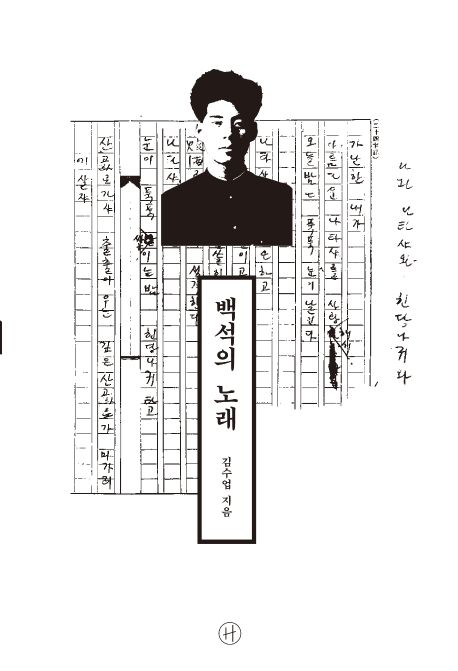 나타샤와 힌당나귀와
가난한 내가
아름다운 나타샤를 사랑해서
오늘밤은 푹푹 눈이 날린다
나타샤
하고
나타샤
눈이 푹푹 쌓이는 밤 힌당나귀 타고
산골로 가쟈 출출이 우는 깊은 산골로 가 마가리
살쟈
백석의 노래
김수업 지음
H